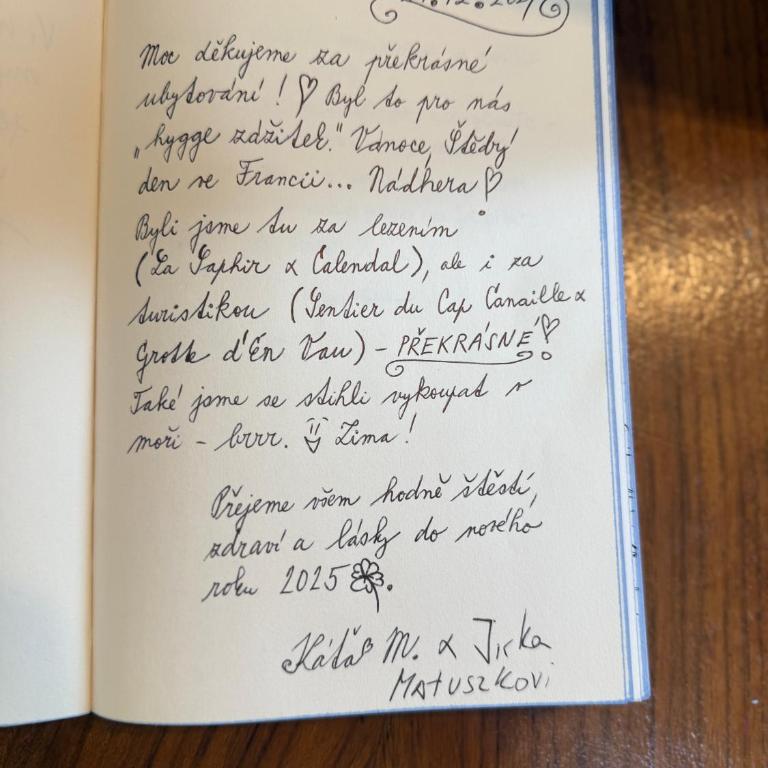 Moc děkujeme za překrásné
ubytování! ♡ Byl to pro nás
„hygge zážitek." Vánoce, Štědrý
den ve Francii... Nádhera ♡
Byli jsme tu za lezením
(La Saphir & Calendal), ale i za
turistikou (Sentier du Cap Canaille &
Grotte d'En Vau) - PŘEKRÁSNÉ!
Také jsme se stihli vykoupat v
moři - brrr. Zima!
Přejeme všem hodně štěstí,
zdraví a lásky do nového
roku 2025.
Káťa M. & Jirka
MATUSZKOVI